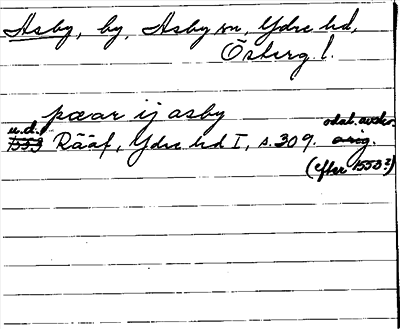 Asby, by, Asby sn, Ydre hd,
Österg l.
pæar ij asby
u.d. odat. avskr.
1553 Rääf, Ydre hd I, s. 309. orig.
(efter 1553?)